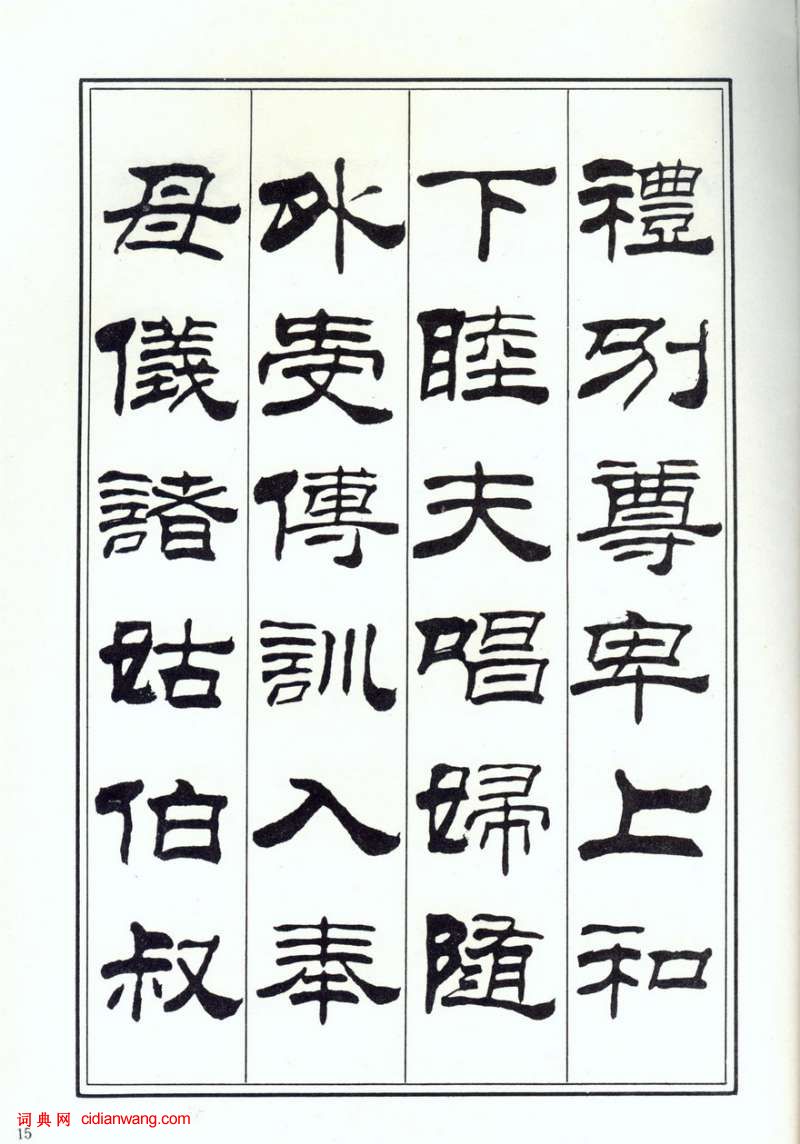 禮別尊卑上和
下睦夫唱婦隨
外受傅訓入奉
母儀諸姑伯叔
词典网 cidianwang.com
15